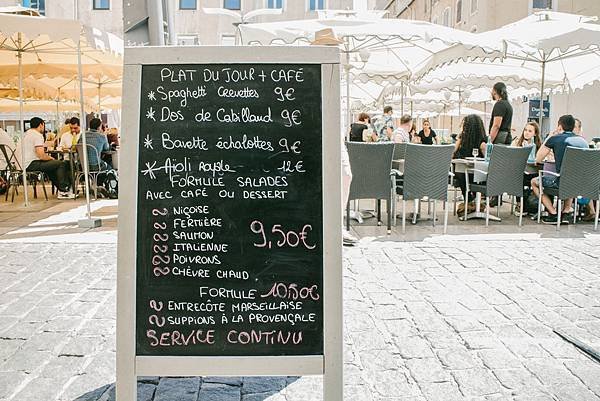 PLAT DU JOUR + CAFÉ
* Spaghetti Crevettes 9€
* Dos de Cabillaud 9€
* Bavette échalottes 9€
* Aïoli royale 12€
FORMULE SALADES
AVEC CAFÉ OU DESSERT
NIÇOISE
FERTIÈRE
SAUMON
ITALIENNE
POIVRONS
CHÈVRE CHAUD
9,50€
FORMULE 10,50€
ENTRECÔTE MARSEILLAISE
SUPPIONS À LA PROVENÇALE
SERVICE CONTINU